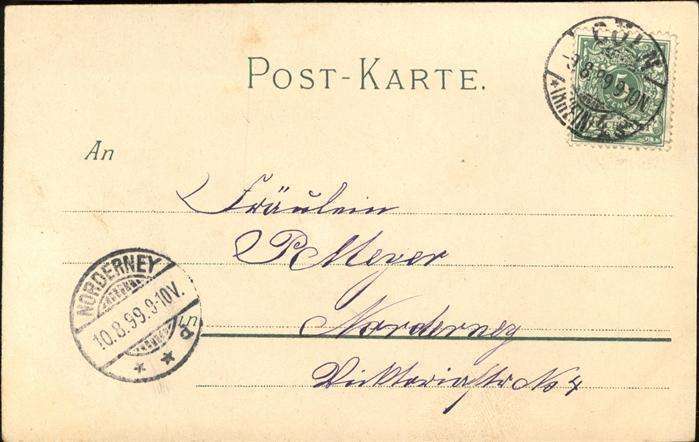 POST-KARTE.
CÖLN
-9.8.99.9-10N.
5
An
Fräulein
P. Meyer
NORDERNEY
10.8.99.9-10V.
In
Norderney
Viktoriastr No 4